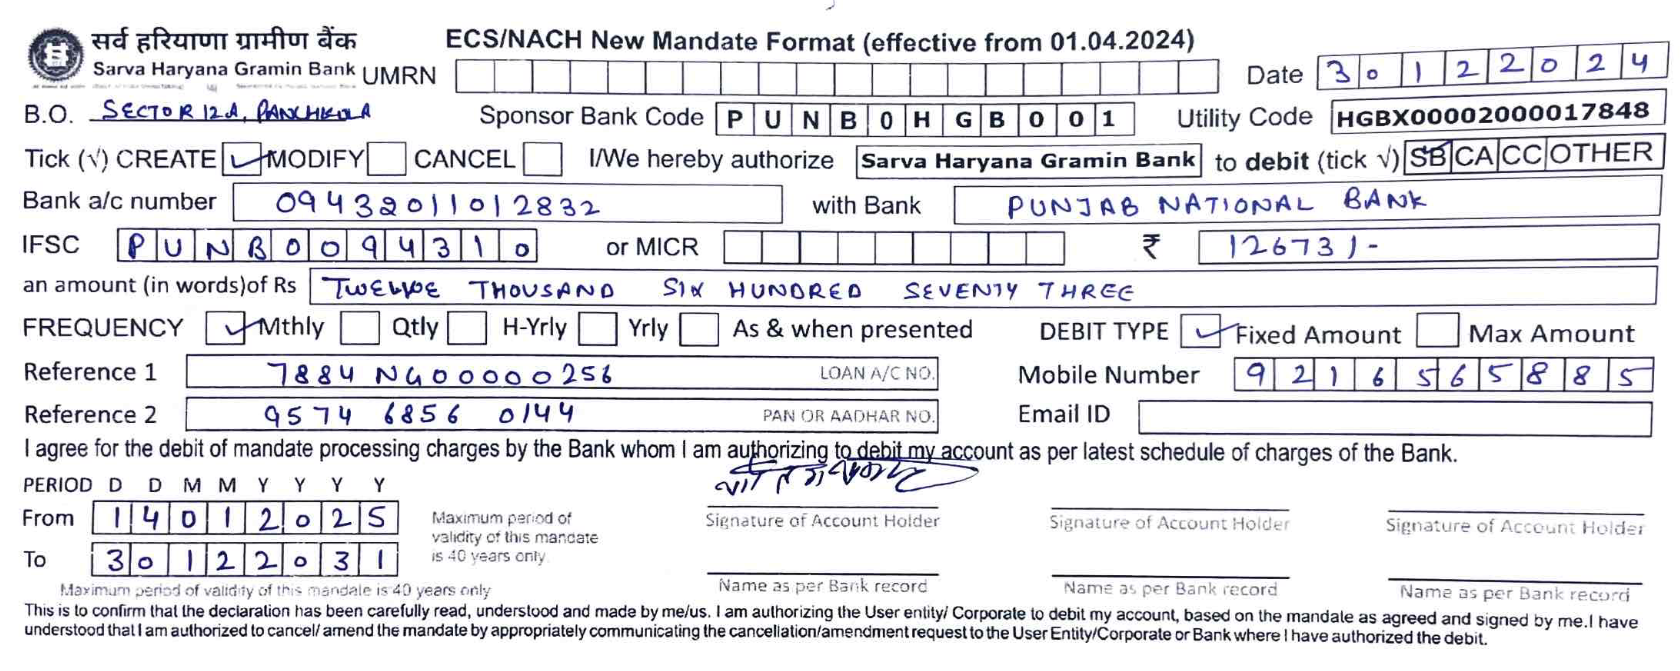 सर्व हरियाणा ग्रामीण बैंक
Sarva Haryana Gramin Bank
ECS/NACH New Mandate Format (effective from 01.04.2024)
UMRN Date 30122024
B.O. SECTOR 12A, PANCHKULA Sponsor Bank Code PUNB0HGB001 Utility Code HGBX00002000017848
Tick (√) CREATE ✓ MODIFY CANCEL I/We hereby authorize Sarva Haryana Gramin Bank to debit (tick √) SB CA CC OTHER
Bank a/c number 09432011012832 with Bank PUNJAB NATIONAL BANK
IFSC PUNB0094310 or MICR ₹ 12673/-
an amount (in words)of Rs TWELVE THOUSAND SIX HUNDRED SEVENTY THREE
FREQUENCY ✓ Mthly Qtly H-Yrly Yrly As & when presented DEBIT TYPE ✓ Fixed Amount Max Amount
Reference 1 7884NG00000256 LOAN A/C NO. Mobile Number 9216565885
Reference 2 9574 6856 0144 PAN OR AADHAR NO. Email ID
I agree for the debit of mandate processing charges by the Bank whom I am authorizing to debit my account as per latest schedule of charges of the Bank.
PERIOD D D M M Y Y Y Y
From 14012025
To 30122031
Maximum period of
validity of this mandate
is 40 years only
Signature of Account Holder Signature of Account Holder Signature of Account Holder
Name as per Bank record Name as per Bank record Name as per Bank record
Maximum period of validity of this mandale is 40 years only
This is to confirm that the declaration has been carefully read, understood and made by me/us. I am authorizing the User entity/ Corporate to debit my account, based on the mandate as agreed and signed by me.I have
understood that I am authorized to cancel/ amend the mandate by appropriately communicating the cancellation/amendment request to the User Entity/Corporate or Bank where I have authorized the debit.